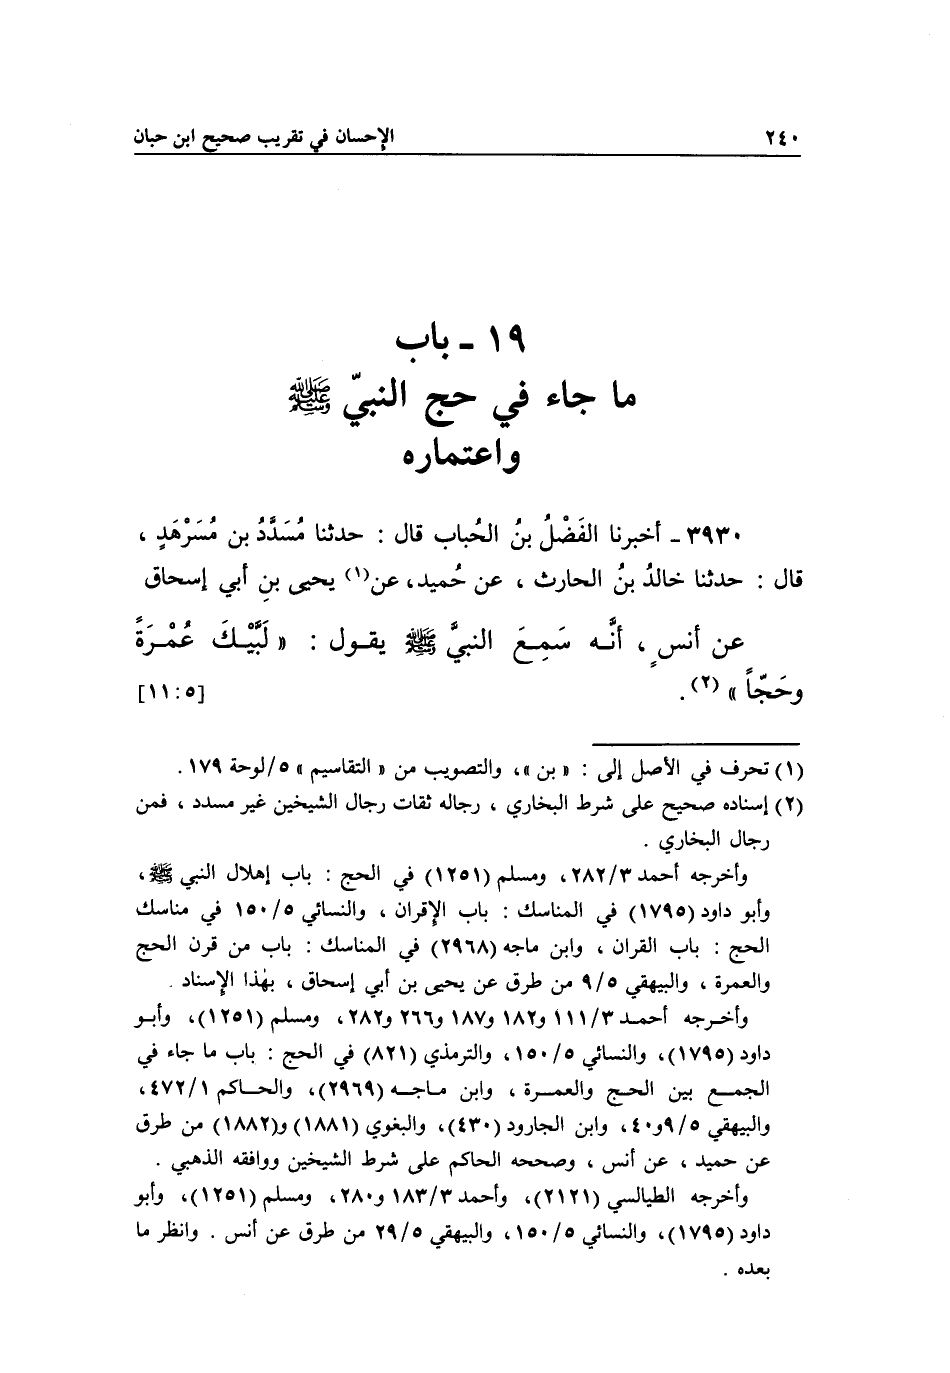 ٢٤٠ الإحسان في تقريب صحيح ابن حبان
١٩ - باب
ما جاء في حج النبيّ ﷺ
واعتماره
٣٩٣٠ - أخبرنا الفَضْلُ بنُ الحُباب قال : حدثنا مُسَدَّدُ بن مُسَرْهَدٍ ،
قال : حدثنا خالدُ بنُ الحارث ، عن حُميد، عن(١) يحيى بنِ أبي إسحاق
عن أنسٍ ، أنَّه سَمِعَ النبيَّ ﷺ يقول : « لَبَّيْكَ عُمْرَةً
وحَجّاً » (٢). [١١:٥]
(١) تحرف في الأصل إلى : « بن »، والتصويب من « التقاسيم » ٥/لوحة ١٧٩ .
(٢) إسناده صحيح على شرط البخاري ، رجاله ثقات رجال الشيخين غير مسدد ، فمن
رجال البخاري .
وأخرجه أحمد ٢٨٢/٣، ومسلم (١٢٥١) في الحج : باب إهلال النبي ﷺ،
وأبو داود (١٧٩٥) في المناسك : باب الإقران ، والنسائي ١٥٠/٥ في مناسك
الحج : باب القران ، وابن ماجه (٢٩٦٨) في المناسك : باب من قرن الحج
والعمرة ، والبيهقي ٩/٥ من طرق عن يحيى بن أبي إسحاق ، بهٰذا الإسناد .
وأخرجه أحمد ١١١/٣ و١٨٢ و١٨٧ و٢٦٦ و٢٨٢، ومسلم (١٢٥١)، وأبو
داود (١٧٩٥)، والنسائي ١٥٠/٥، والترمذي (٨٢١) في الحج : باب ما جاء في
الجمع بين الحج والعمرة ، وابن ماجه (٢٩٦٩)، والحاكم ٤٧٢/١،
والبيهقي ٩/٥ و٤٠، وابن الجارود (٤٣٠)، والبغوي (١٨٨١) و(١٨٨٢) من طرق
عن حميد ، عن أنس ، وصححه الحاكم على شرط الشيخين ووافقه الذهبي .
وأخرجه الطيالسي (٢١٢١)، وأحمد ١٨٣/٣ و٢٨٠، ومسلم (١٢٥١)، وأبو
داود (١٧٩٥)، والنسائي ١٥٠/٥، والبيهقي ٢٩/٥ من طرق عن أنس . وانظر ما
بعده .